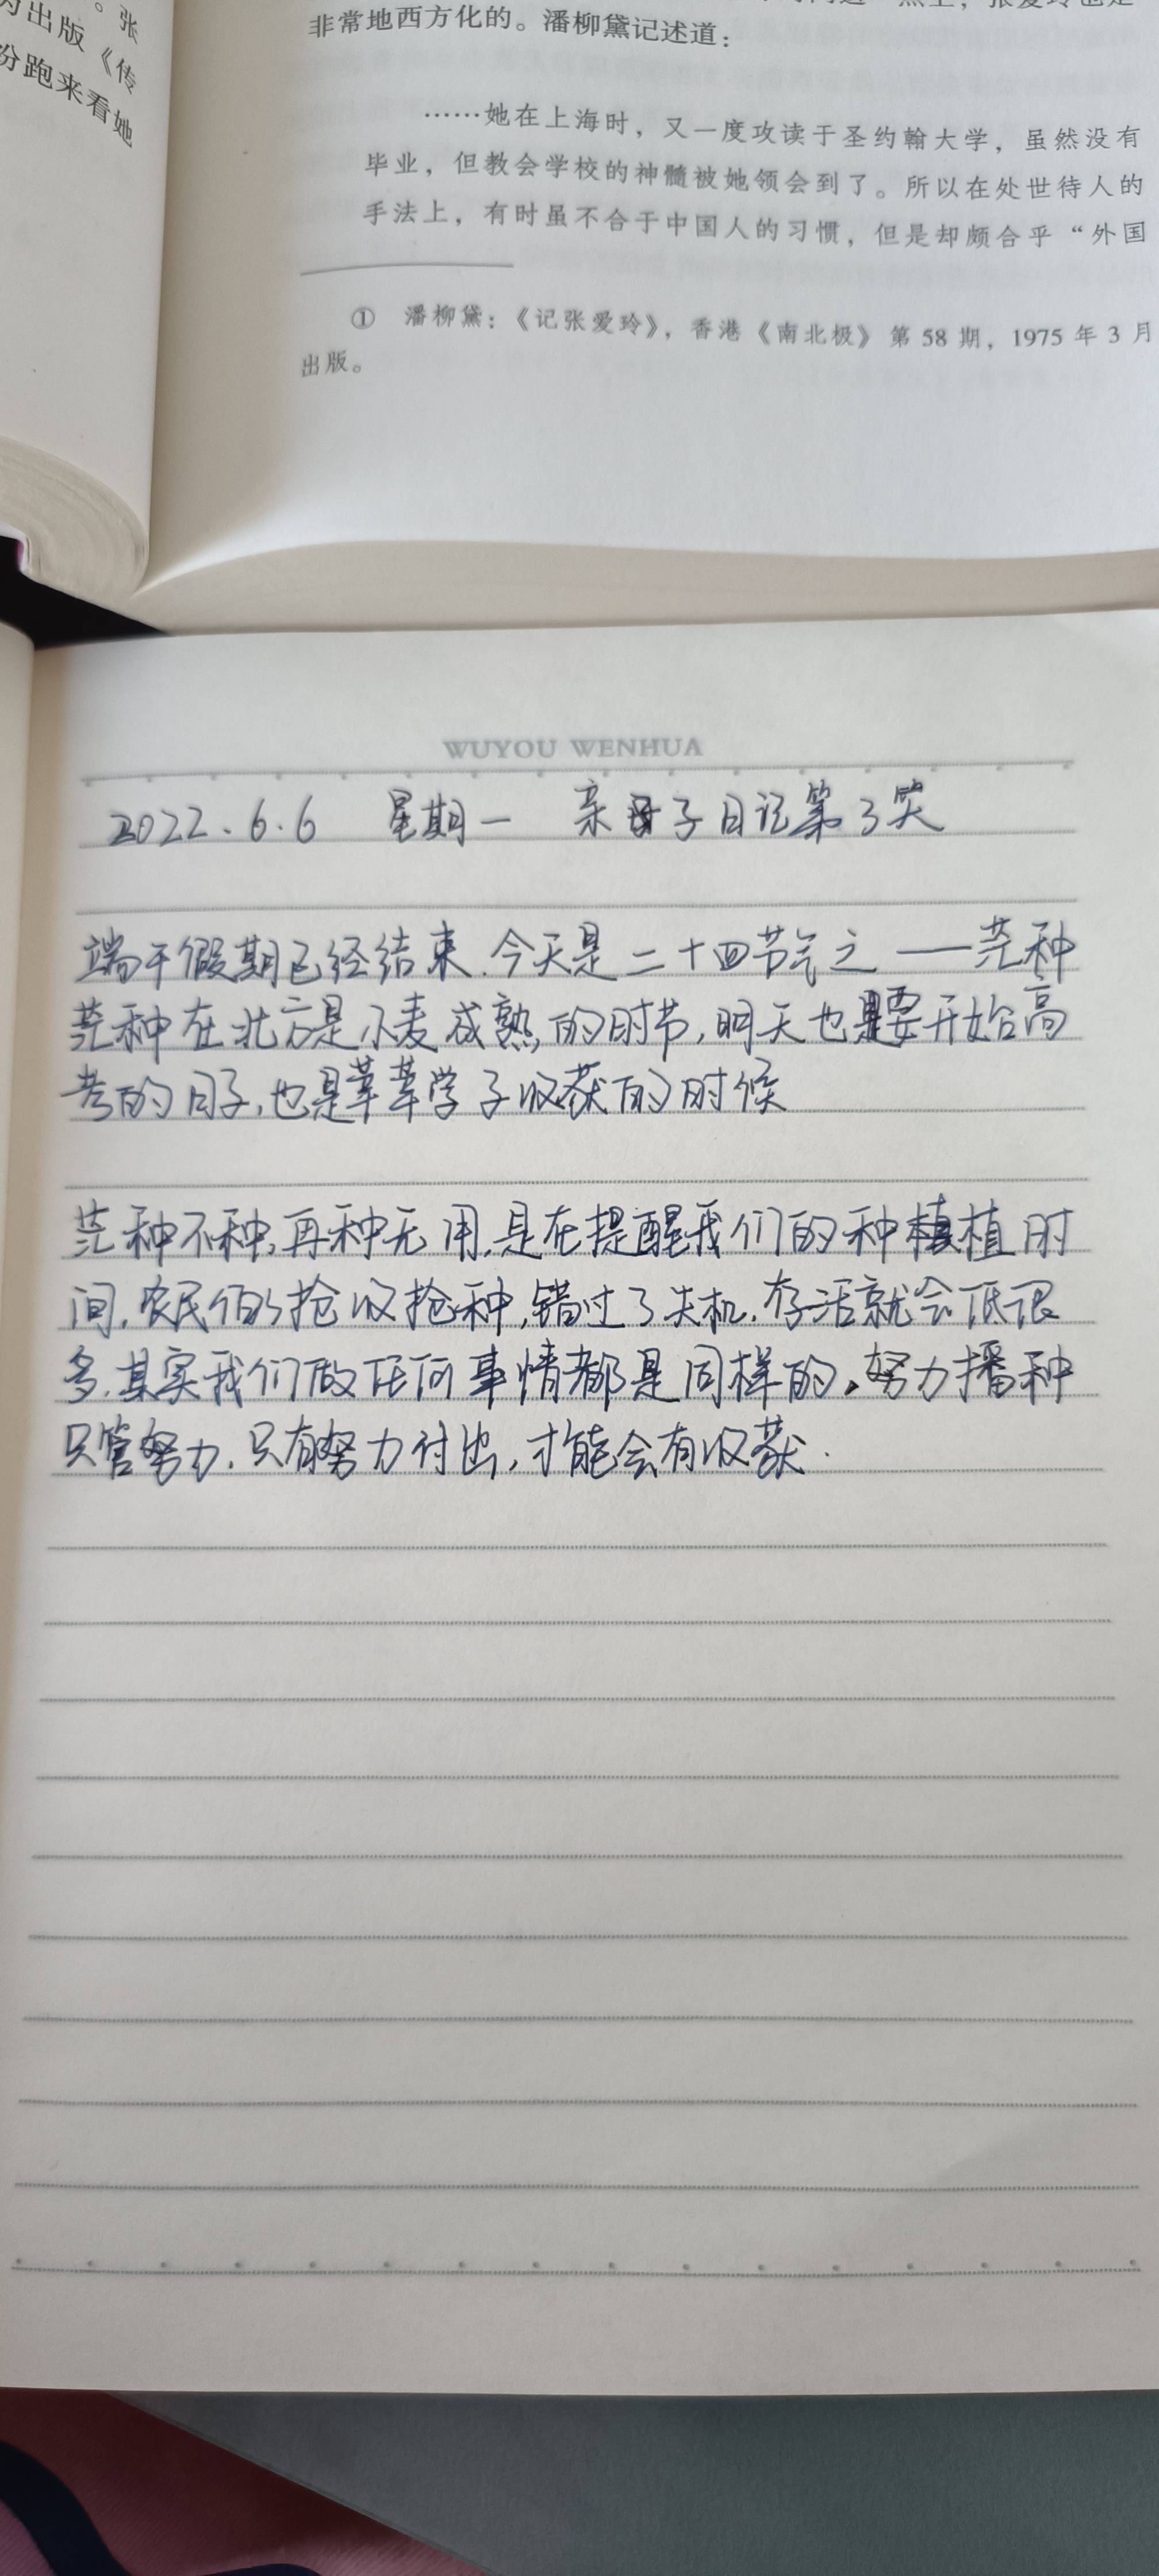 。张
为出版《传
份跑来看她
非常地西方化的。潘柳黛记述道：
……她在上海时，又一度攻读于圣约翰大学，虽然没有
毕业，但教会学校的神髓被她领会到了。所以在处世待人的
手法上，有时虽不合于中国人的习惯，但是却颇合乎“外国
① 潘柳黛：《记张爱玲》，香港《南北极》第58期，1975年3月
出版。
WUYOU WENHUA
2022.6.6 星期一 亲子日记第3天
端午假期已经结束.今天是二十四节气之一——芒种
芒种在北方是小麦成熟的时节,明天也是要开始高
考的日子,也是莘莘学子收获的时候
芒种不种,再种无用,是在提醒我们的种植时
间,农民伯伯抢收抢种,错过了失机,存活就会低很
多.其实我们做任何事情都是同样的,努力播种
只管努力.只有努力付出,才能会有收获.